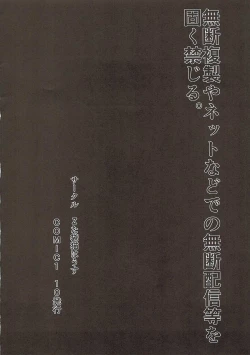 無断複製やネットなどでの無断配信等を
固く禁じる。
サークル
COMIC1 10発行